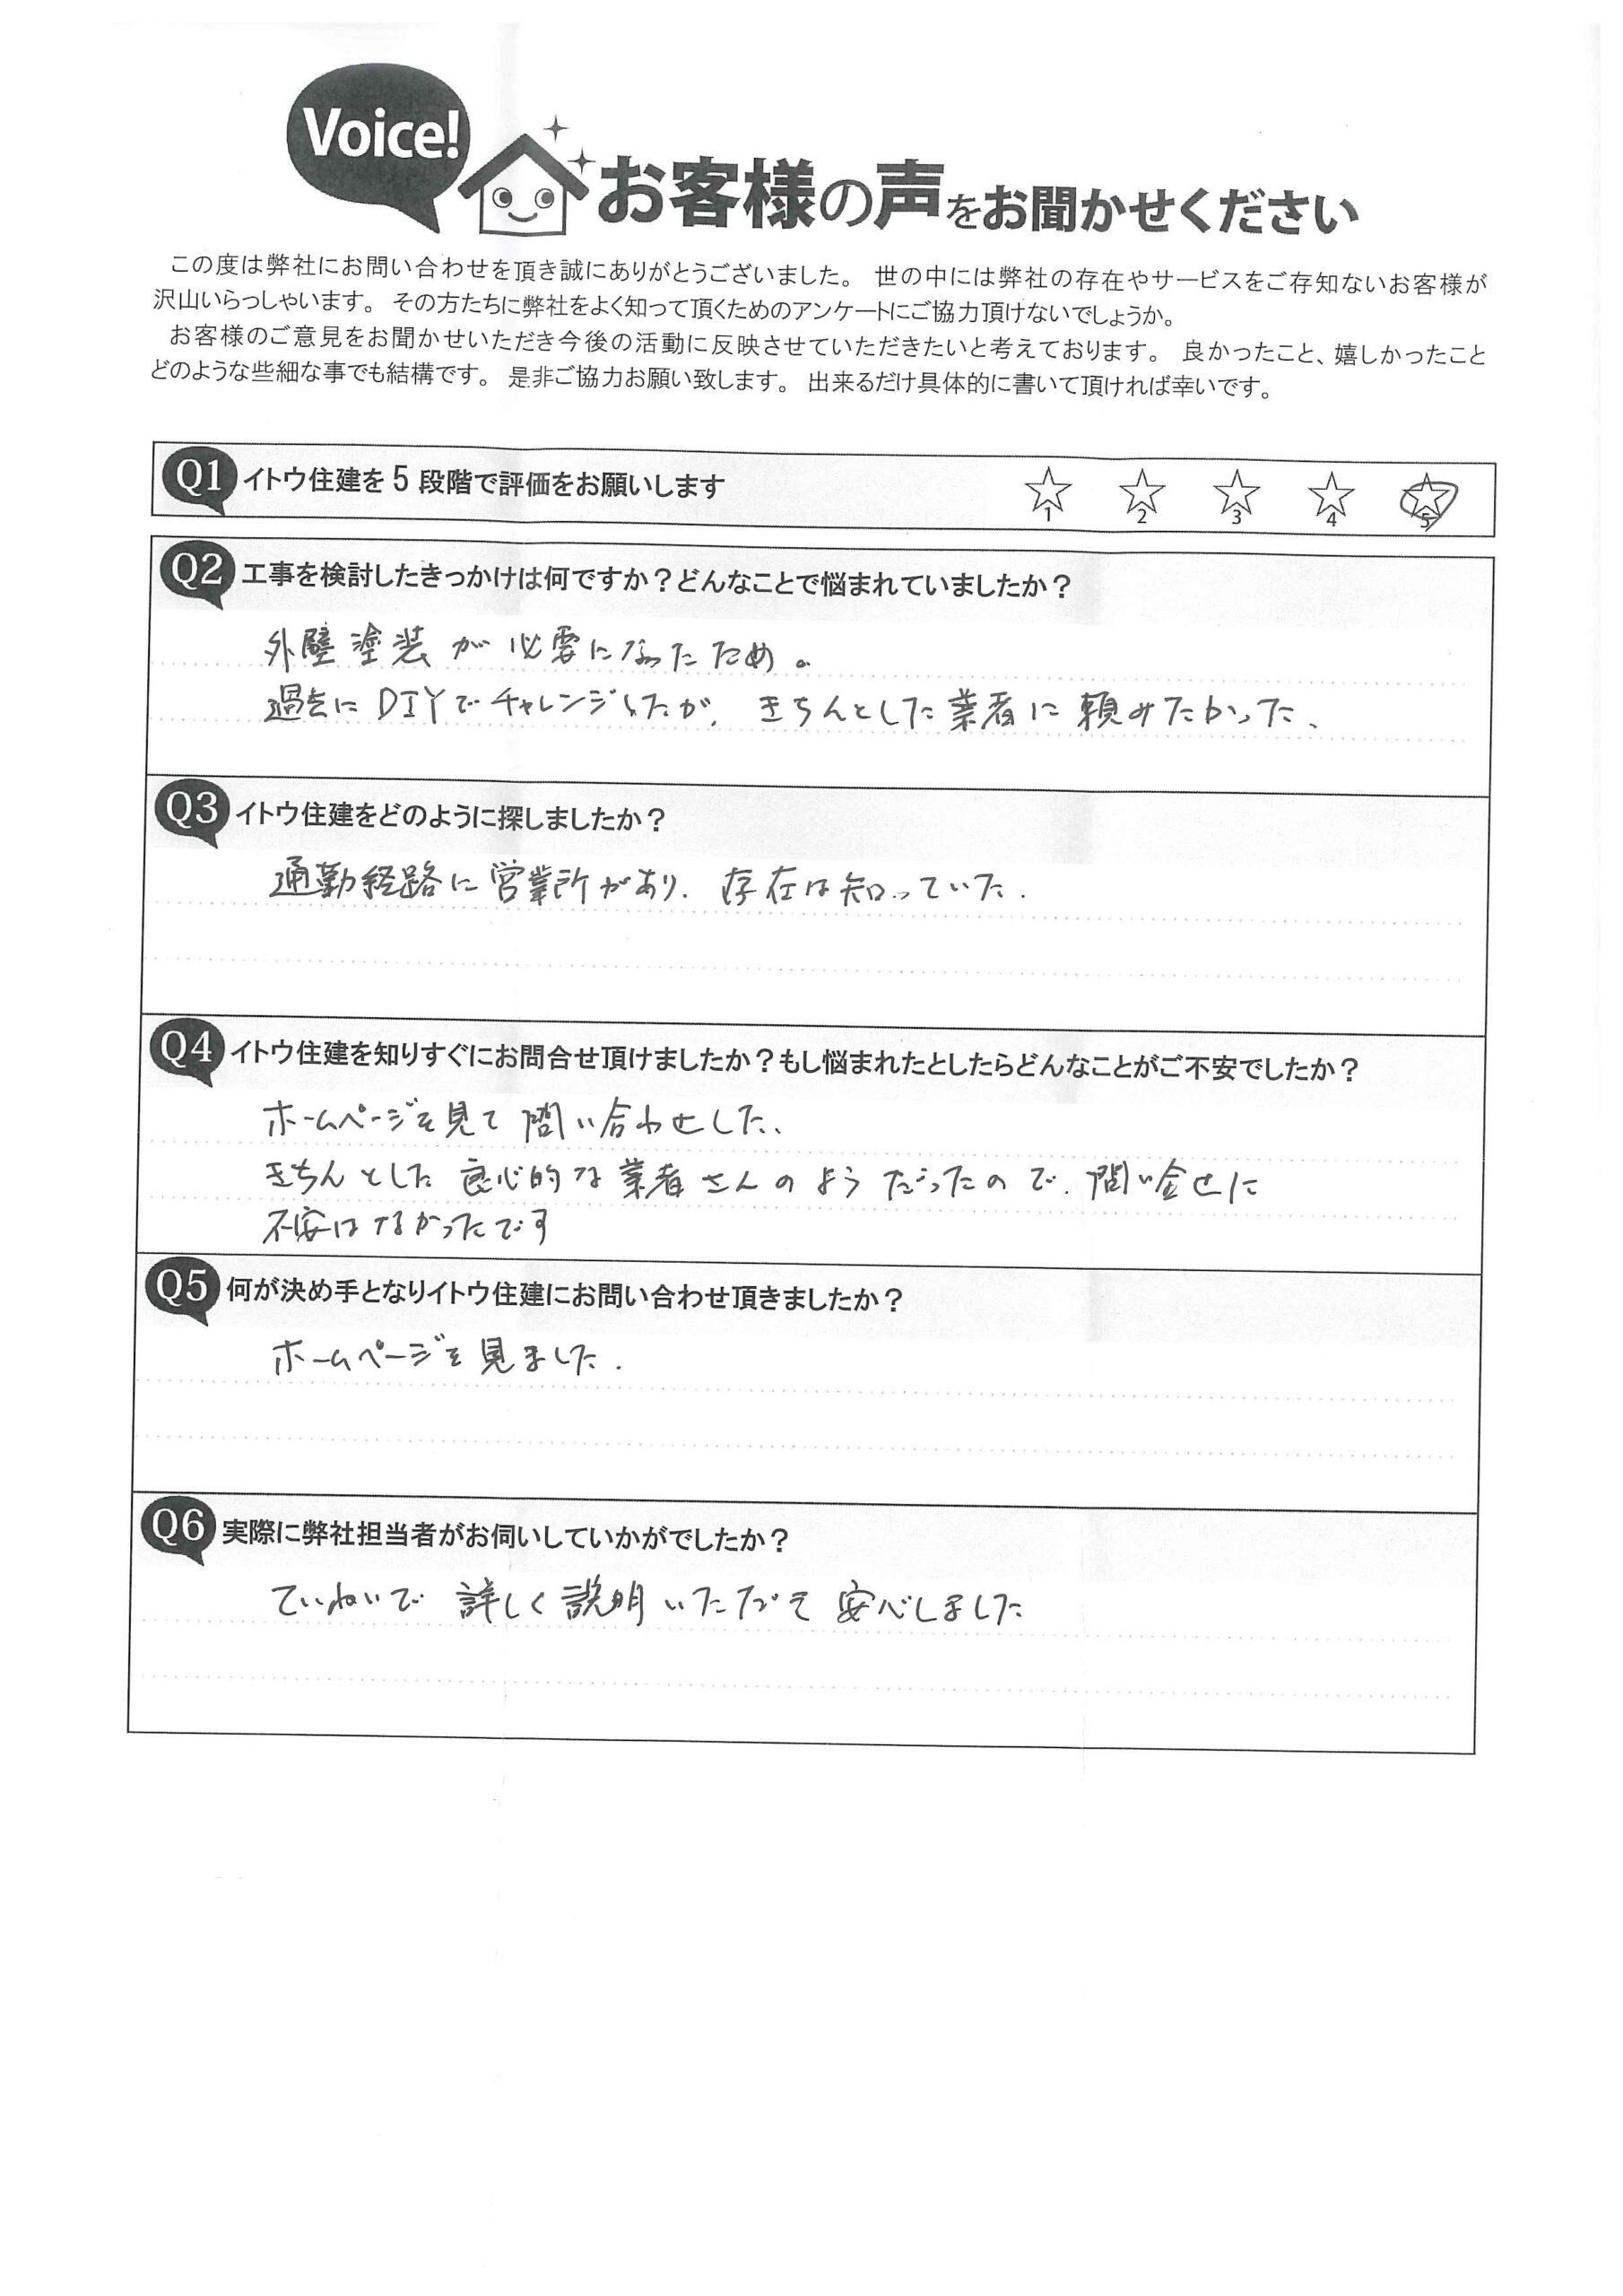 Voice!
お客様の声をお聞かせください
この度は弊社にお問い合わせを頂き誠にありがとうございました。 世の中には弊社の存在やサービスをご存知ないお客様が
沢山いらっしゃいます。 その方たちに弊社をよく知って頂くためのアンケートにご協力頂けないでしょうか。
お客様のご意見をお聞かせいただき今後の活動に反映させていただきたいと考えております。 良かったこと、嬉しかったこと
どのような些細な事でも結構です。 是非ご協力お願い致します。 出来るだけ具体的に書いて頂ければ幸いです。
Q1 イトウ住建を5段階で評価をお願いします ☆1 ☆2 ☆3 ☆4 ☆5
Q2 工事を検討したきっかけは何ですか？どんなことで悩まれていましたか？
外壁塗装が必要になったため。
過去にDIYでチャレンジしたが、きちんとした業者に頼みたかった、
Q3 イトウ住建をどのように探しましたか？
通勤経路に営業所があり、存在は知っていた.
Q4 イトウ住建を知りすぐにお問合せ頂けましたか？もし悩まれたとしたらどんなことがご不安でしたか？
ホームページを見て問い合わせした、
きちんとした良心的な業者さんのようだったので、問い合せに
不安はなかったです
Q5 何が決め手となりイトウ住建にお問い合わせ頂きましたか？
ホームページを見ました.
Q6 実際に弊社担当者がお伺いしていかがでしたか？
ていねいで 詳しく説明いただき 安心しました